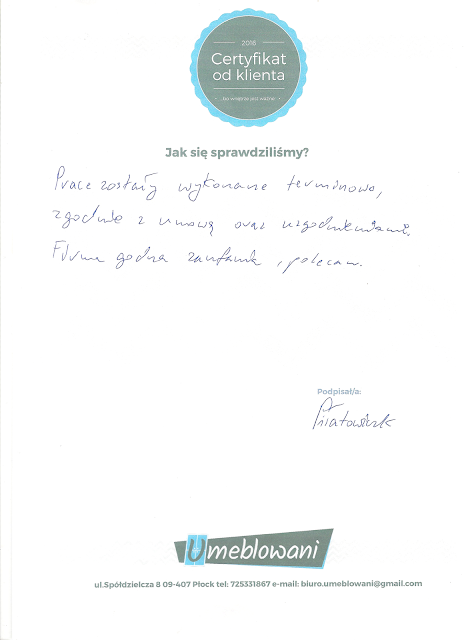 2016
Certyfikat
od klienta
Jak się sprawdziliśmy?
Prace zostały wykonane terminowo,
zgodnie z umową oraz uzgodnieniami.
Firma godna zaufania, polecam.
Podpisał/a:
Umeblowani
ul.Spółdzielcza 8 09-407 Płock tel: 725331867 e-mail: biuro.umeblowani@gmail.com